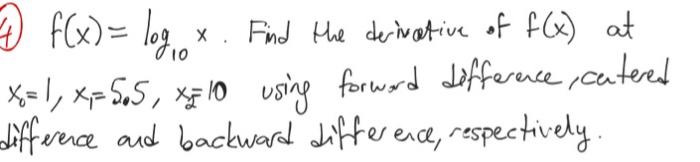 ④ f(x) = log₁₀ x . Find the derivative of f(x) at
x₀=1, x₁=5.5, x₂=10 using forward difference, centered
difference and backward difference, respectively.